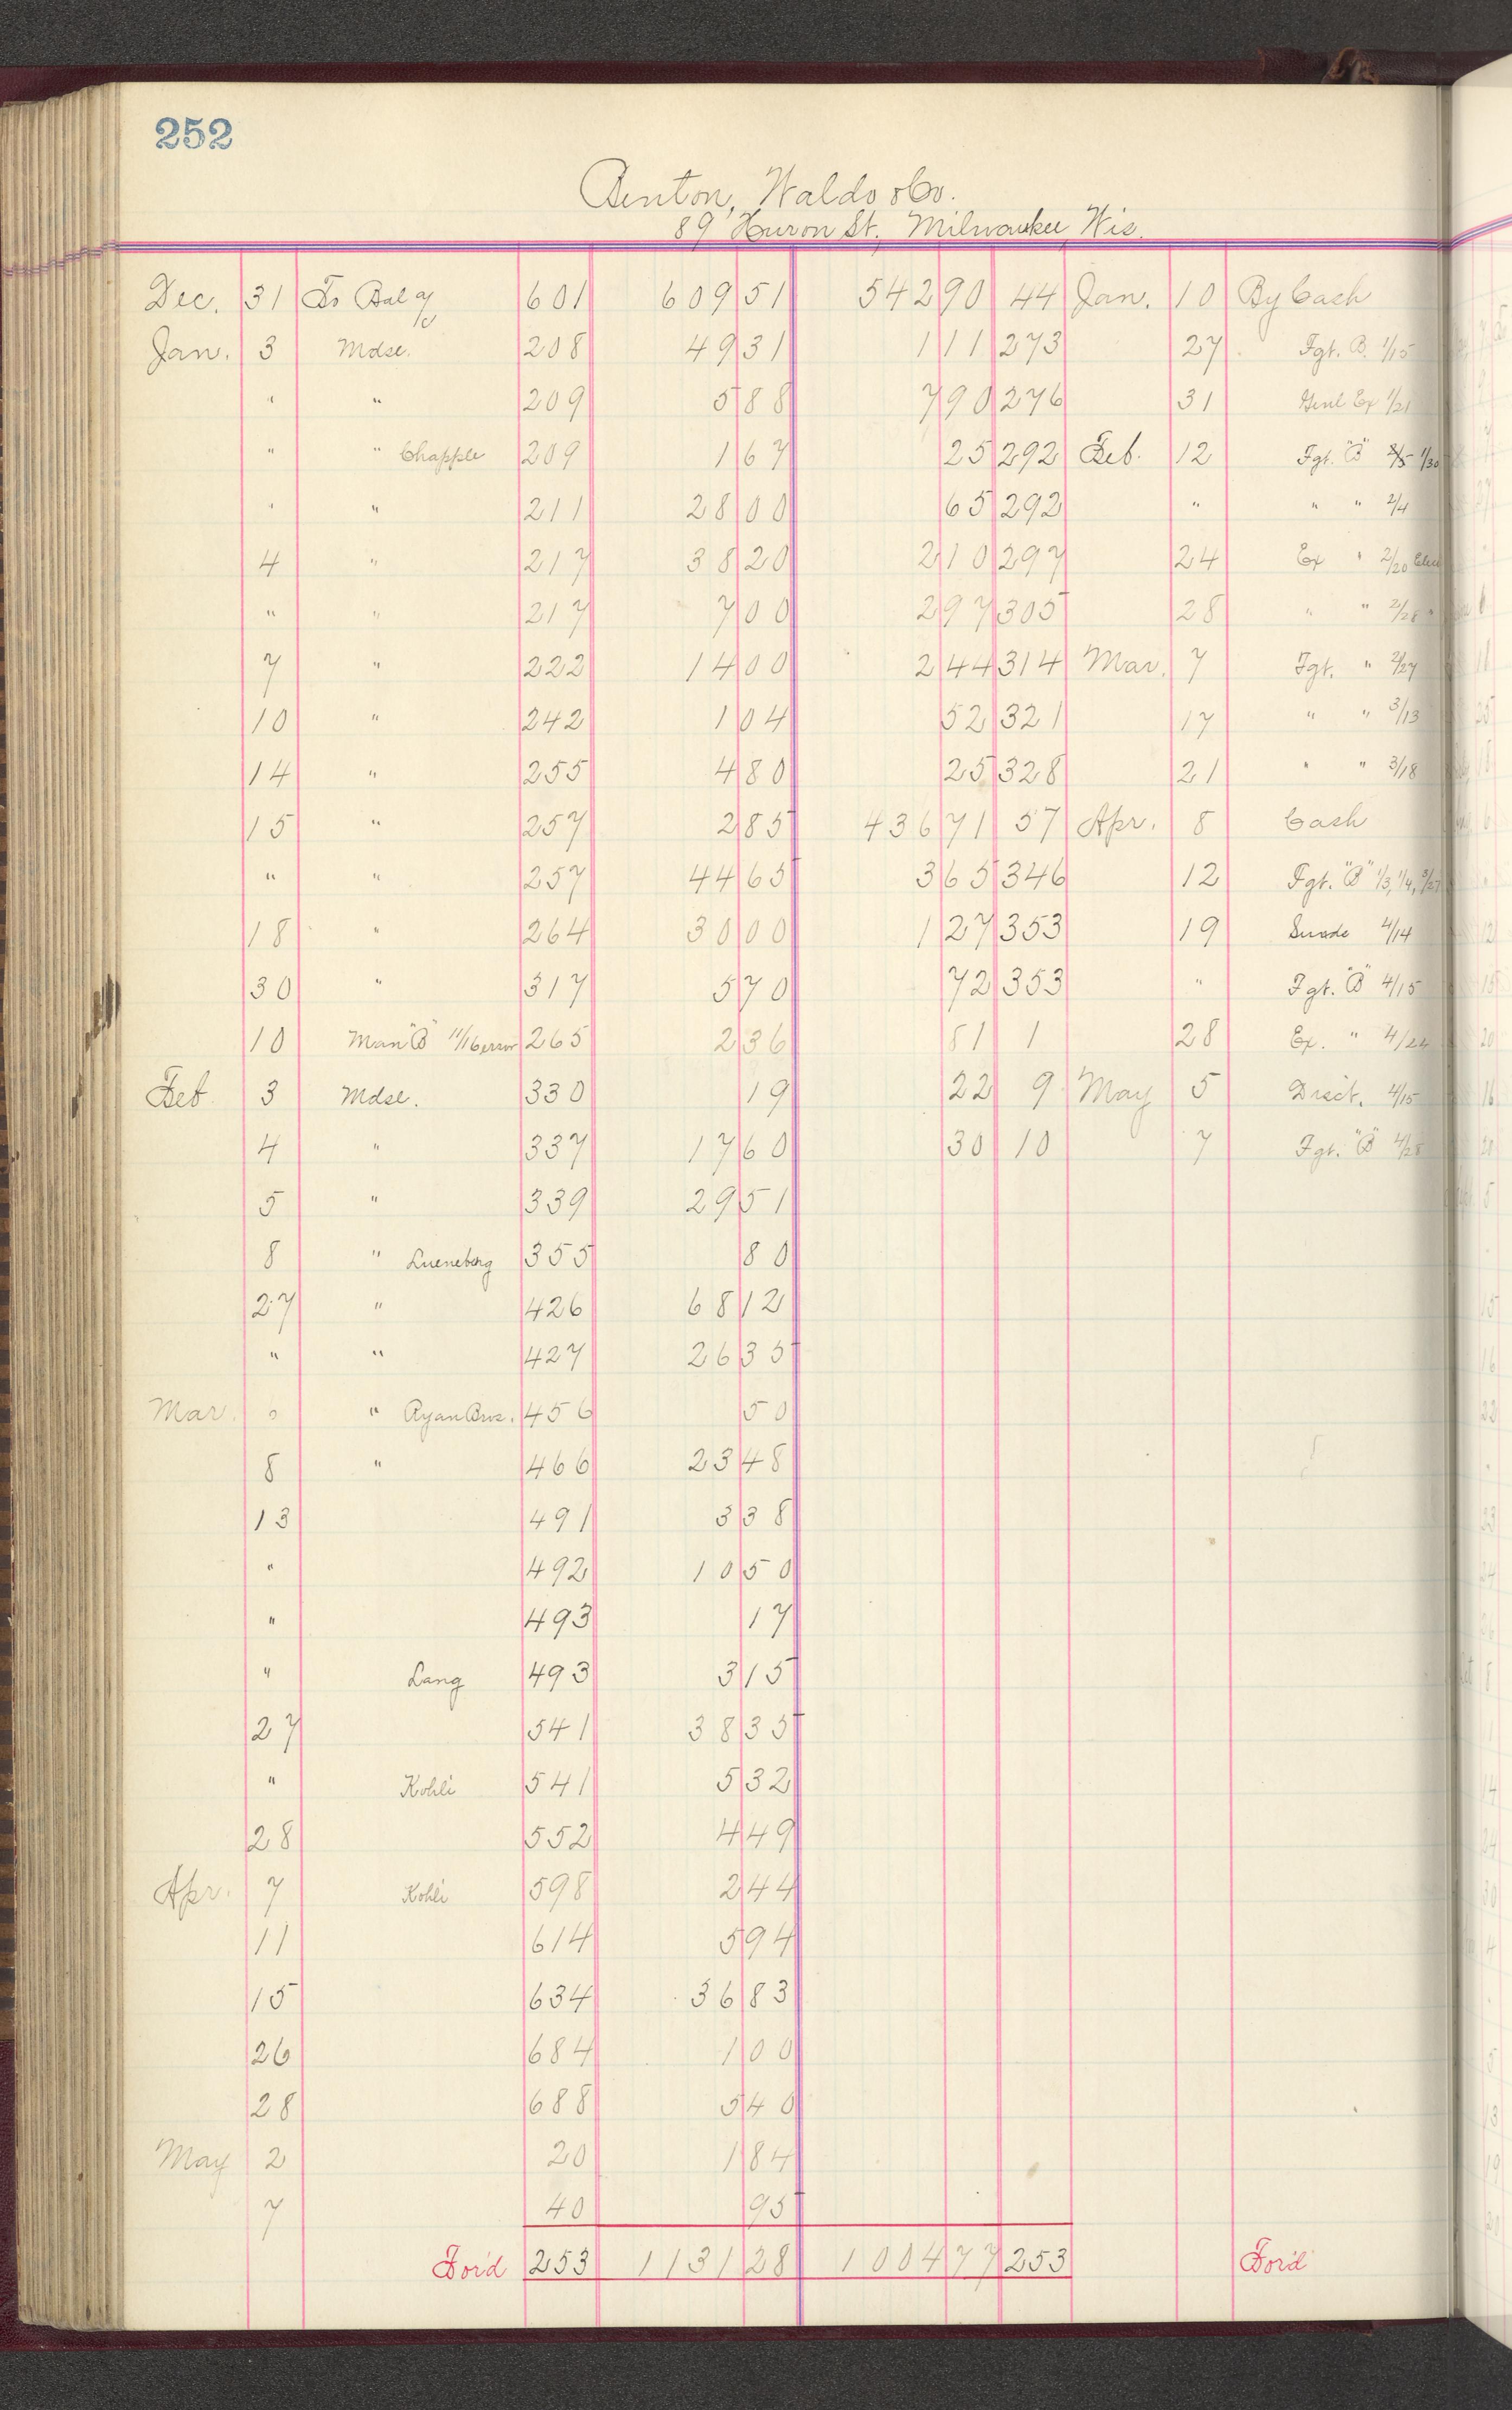 252
Benton, Waldo & Co.
89 Huron St., Milwaukee, Wis.
Dec. 31 To Bal a/c 601 609 51 542 90 44 Jan. 10 By Cash
Jan. 3 Mdse. 208 49 31 1 11 273 27 Fgt. B. 1/15
" " 209 5 88 7 90 276 31 Genl Ex 1/21
" " Chapple 209 1 67 25 292 Feb. 12 Fgt. "B" 1/30
" " 211 28 00 65 292 " " " 2/4
4 " 217 38 20 2 10 297 24 Ex " 2/20
" " 217 7 00 2 97 305 28 " " 2/28 "
7 " 222 14 00 2 44 314 Mar. 7 Fgt. " 2/27
10 " 242 1 04 52 321 17 " " 3/13
14 " 255 4 80 25 328 21 " " 3/18
15 " 257 2 85 436 71 57 Apr. 8 Cash
" " 257 44 65 3 65 346 12 Fgt. "B" 1/3, 1/4, 3/27
18 " 264 30 00 1 27 353 19 Sunds 4/14
30 " 317 5 70 72 353 " Fgt. "B" 4/15
10 Man "B" 11/16 error 265 2 36 81 1 28 Ex. " 4/24
Feb. 3 Mdse. 330 19 22 9 May 5 Disct. 4/15
4 " 337 17 60 30 10 7 Fgt. "B" 4/28
5 " 339 29 51
8 " Lueneberg 355 80
27 " 426 68 12
" " 427 26 35
Mar. " Ryan Bros. 456 50
8 " 466 23 48
13 491 3 38
" 492 10 50
" 493 17
" Lang 493 3 15
27 541 38 35
" Kohli 541 5 32
28 552 4 49
Apr. 7 Kohli 598 2 44
11 614 5 94
15 634 36 83
26 684 1 00
28 688 5 40
May 2 20 1 84
7 40 95
For'd 253 1131 28 1004 77 253 For'd